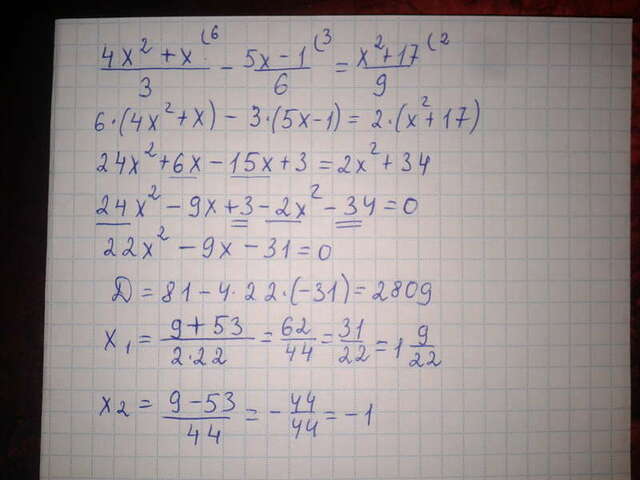 (4x² + x)/3 (6 − (5x − 1)/6 (3 = (x² + 17)/9 (2
6·(4x² + x) − 3·(5x − 1) = 2·(x² + 17)
24x² + 6x − 15x + 3 = 2x² + 34
24x² − 9x + 3 − 2x² − 34 = 0
22x² − 9x − 31 = 0
D = 81 − 4·22·(−31) = 2809
x₁ = (9 + 53)/(2·22) = 62/44 = 31/22 = 1 9/22
x₂ = (9 − 53)/44 = −44/44 = −1